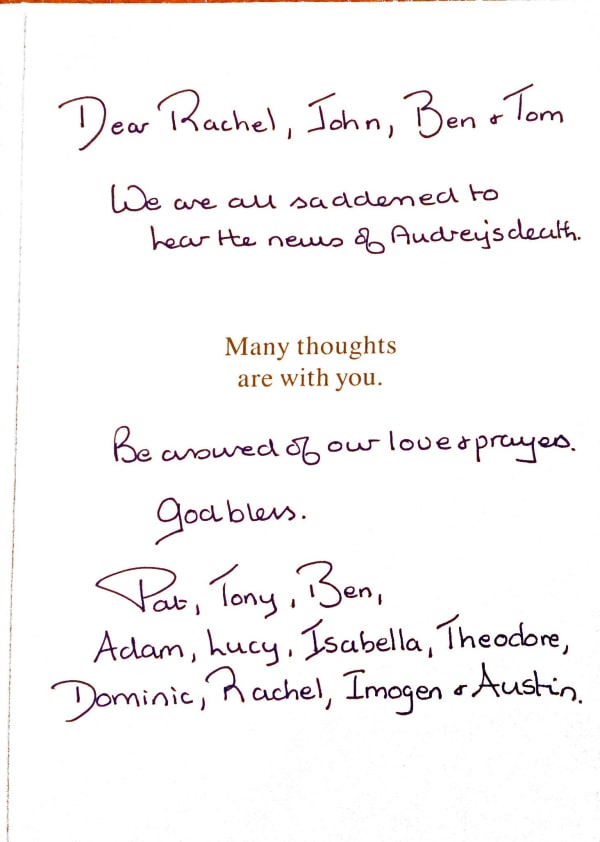 Dear Rachel, John, Ben & Tom
We are all saddened to
hear the news of Audrey's death.
Many thoughts
are with you.
Be assured of our love & prayers.
God bless.
Pat, Tony, Ben,
Adam, Lucy, Isabella, Theodore,
Dominic, Rachel, Imogen & Austin.